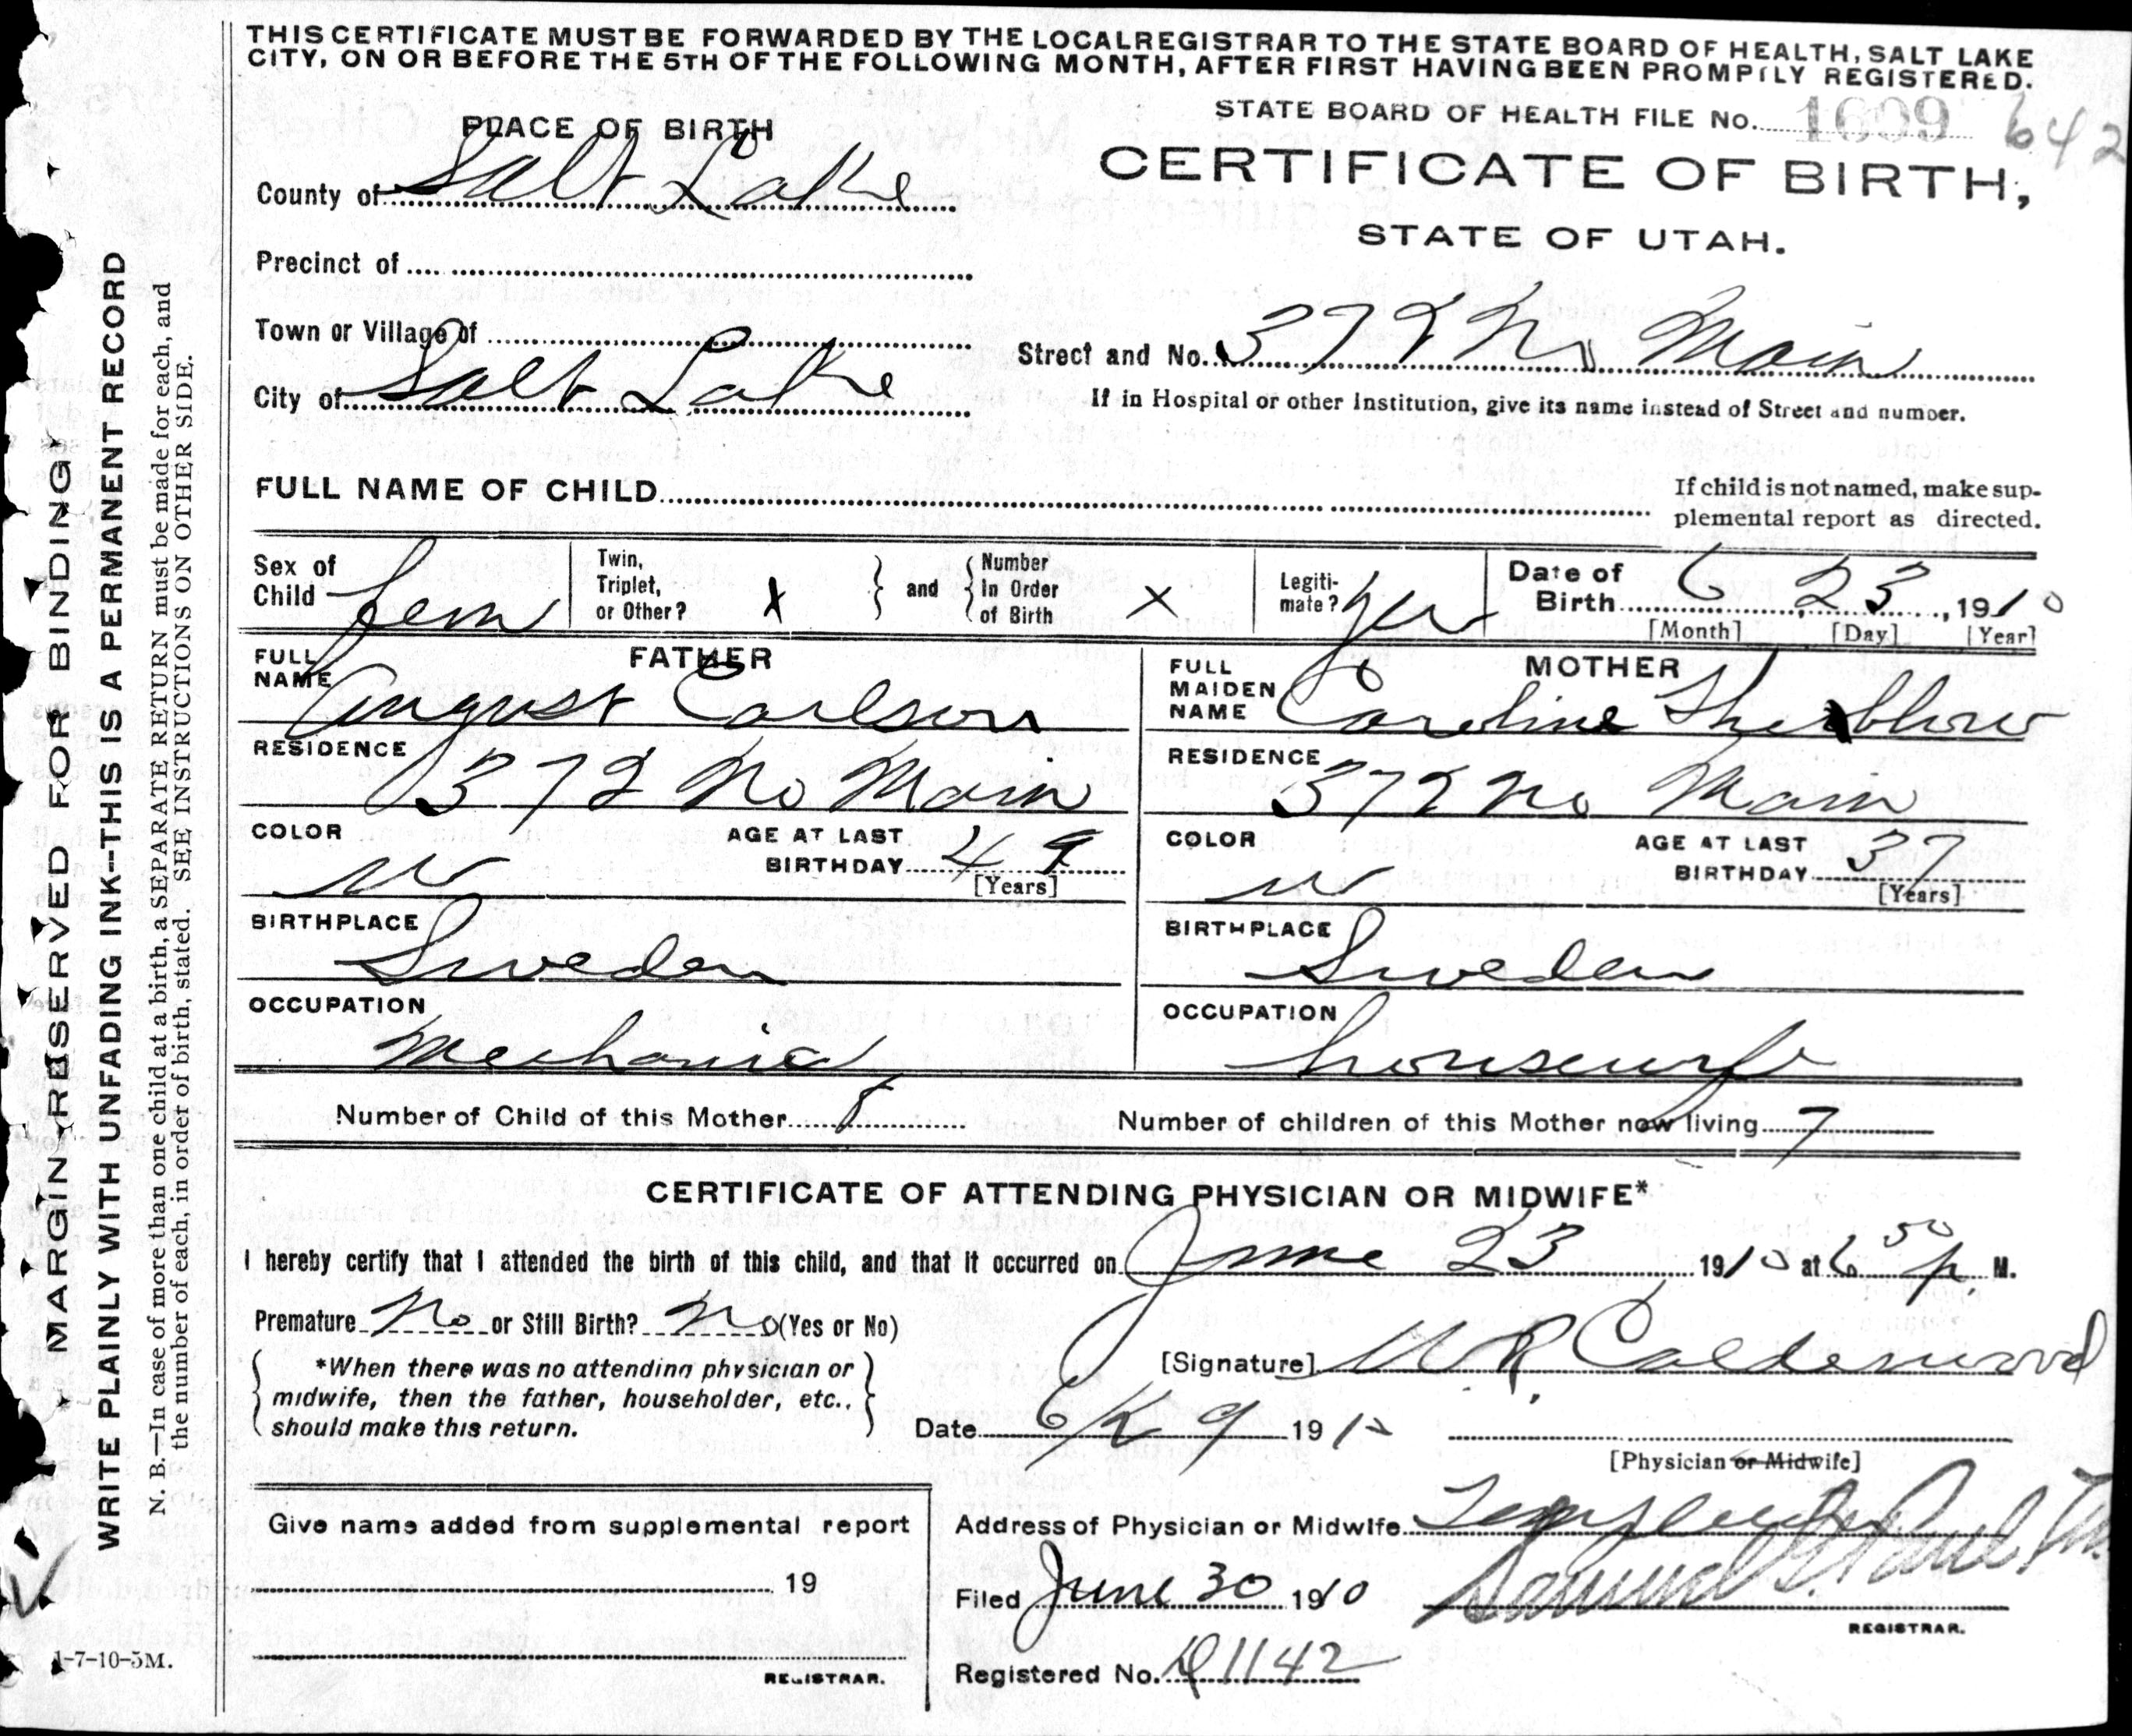 THIS CERTIFICATE MUST BE FORWARDED BY THE LOCAL REGISTRAR TO THE STATE BOARD OF HEALTH, SALT LAKE
CITY, ON OR BEFORE THE 5TH OF THE FOLLOWING MONTH, AFTER FIRST HAVING BEEN PROMPTLY REGISTERED.
STATE BOARD OF HEALTH FILE No. 1609 642
PLACE OF BIRTH
CERTIFICATE OF BIRTH,
STATE OF UTAH.
County of Salt Lake
Precinct of
Town or Village of
Street and No. 372 No Main
City of Salt Lake
If in Hospital or other Institution, give its name instead of Street and number.
FULL NAME OF CHILD
If child is not named, make sup-
plemental report as directed.
Sex of Child fem
Twin, Triplet, or Other? X
and Number In Order of Birth X
Legiti-mate? yes
Date of Birth 6 23, 1910
[Month] [Day] [Year]
FATHER
FULL NAME August Carlson
RESIDENCE 372 No Main
COLOR W AGE AT LAST BIRTHDAY 49
[Years]
BIRTHPLACE
Sweden
OCCUPATION
Mechanic
MOTHER
FULL MAIDEN NAME Caroline
RESIDENCE 372 No Main
COLOR W AGE AT LAST BIRTHDAY 37
[Years]
BIRTHPLACE
Sweden
OCCUPATION
housewife
Number of Child of this Mother 8 Number of children of this Mother now living 7
CERTIFICATE OF ATTENDING PHYSICIAN OR MIDWIFE*
I hereby certify that I attended the birth of this child, and that it occurred on June 23 1910 at 6 50 p. M.
Premature No or Still Birth? No (Yes or No)
*When there was no attending physician or
midwife, then the father, householder, etc.,
should make this return.
[Signature] W R Calderwood
Date 6/29 1910
[Physician or Midwife]
Give name added from supplemental report
19
REGISTRAR.
Address of Physician or Midwife
Filed June 30 1910 Samuel G. Paul
REGISTRAR.
Registered No. 1142
MARGIN RESERVED FOR BINDING
WRITE PLAINLY WITH UNFADING INK--THIS IS A PERMANENT RECORD
N. B.—In case of more than one child at a birth, a SEPARATE RETURN must be made for each, and
the number of each, in order of birth, stated. SEE INSTRUCTIONS ON OTHER SIDE.
1-7-10-5M.